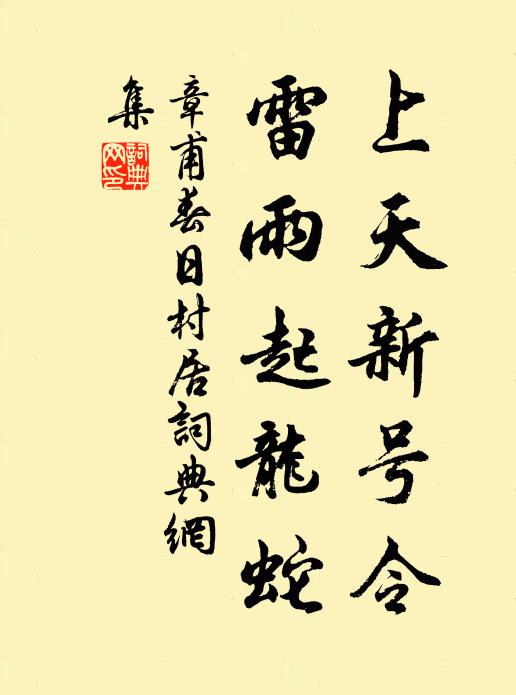 上天新号令
雷雨起龍蛇
章甫春日村居詞典網
集
詞典网印